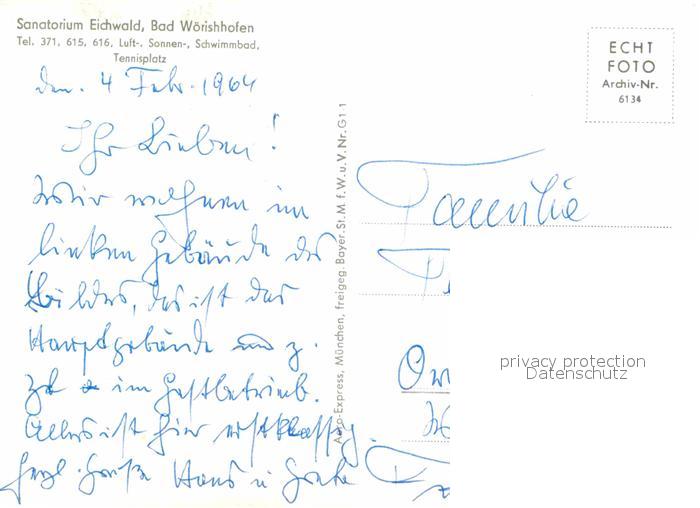 Sanatorium Eichwald, Bad Wörishhofen
Tel. 371, 615, 616, Luft-, Sonnen-, Schwimmbad,
Tennisplatz
den. 4 Febr. 1964
Ihr Lieben!
wir wohnen im
linken Gebäude des
Bildes, das ist das
Hauptgebäude und z.
Zt im Gastbetrieb.
Alles ist hier erstklassig.
Herzl. Grüße Hans u Grete
Aero-Express, München, freigeg. Bayer.St.M.f.W.u.V.Nr.G1 1
ECHT
FOTO
Archiv-Nr.
6134
Familie
privacy protection
Datenschutz